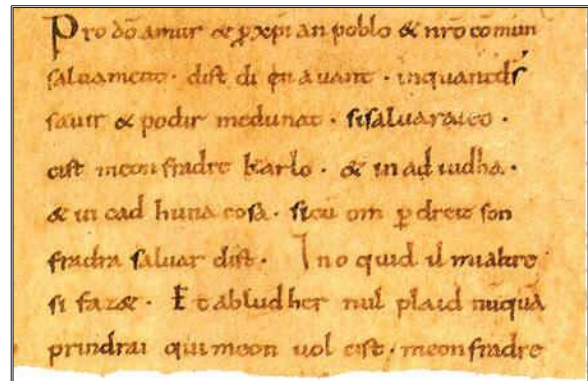 Pro dō amur & p̄ xp̄i an poblo & nrō cōmun
saluament · dist di en auant · inquantdś
sauir & podir medunat · sisaluaraieo ·
cist meon fradre karlo · & in ad iudha ·
& in cad huna cosa · sicū om p̄ dreit son
fradra saluar dist · Ino quid il mialtre
si faz& · Et abludher nul plaid nūquā
prindrai qui meon uol cist · meon fradre